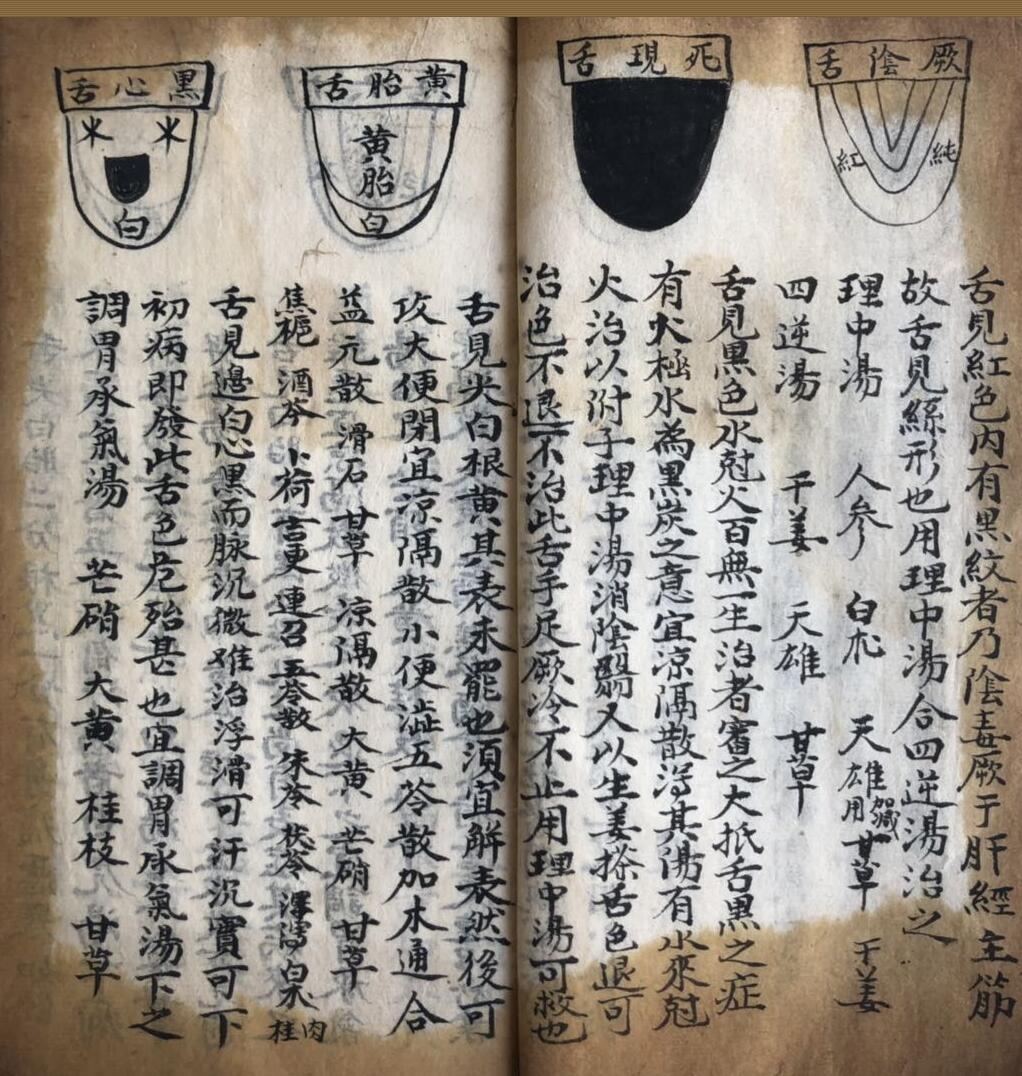 厥陰舌
純
紅
舌見紅色內有黑紋者乃陰毒厥于肝經主筋
故舌見絲形也用理中湯合四逆湯治之
理中湯 人參 白朮 天雄 甘草 干姜
四逆湯 干姜 天雄 甘草
死現舌
舌見黑色水尅火百無一生治者審之大抵舌黑之症
有火極水為黑炭之意宜涼隔散瀉其湯有水來尅
火治以附子理中湯消陰翳又以生姜擦舌色退可
治色不退不治此舌手足厥冷不止用理中湯可救也
黃胎舌
黃胎
白
舌見尖白根黃其表未罷也須宜解表然後可
攻大便閉宜涼隔散小便澁五苓散加木通合
益元散 滑石 甘草 涼隔散 大黃 芒硝 甘草
焦梔 酒芩 卜荷 連召 五苓散 朱苓 茯苓 澤瀉 白朮 肉桂
黑心舌
米
米
白
舌見邊白心黑而脉沉微难治浮滑可汗沉實可下
初病即發此舌色危殆甚也宜調胃承氣湯下之
調胃承氣湯 芒硝 大黃 桂枝 甘草